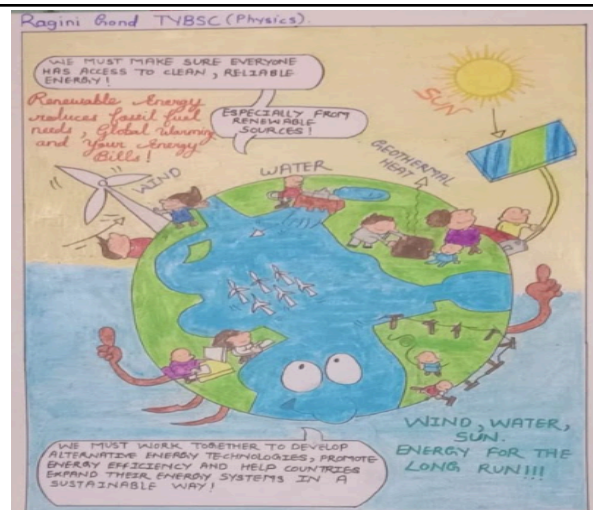 Ragini Gond TYBSC (Physics).
WE MUST MAKE SURE EVERYONE
HAS ACCESS TO CLEAN, RELIABLE
ENERGY!
Renewable Energy
reduces fossil fuel
needs, Global Warming
and Your Energy
Bills!
ESPECIALLY FROM
RENEWABLE
SOURCES!
SUN
WIND
WATER
GEOTHERMAL
HEAT
WE MUST WORK TOGETHER TO DEVELOP
ALTERNATIVE ENERGY TECHNOLOGIES, PROMOTE
ENERGY EFFICIENCY AND HELP COUNTRIES
EXPAND THEIR ENERGY SYSTEMS IN A
SUSTAINABLE WAY!
WIND, WATER,
SUN.
ENERGY FOR THE
LONG RUN!!!